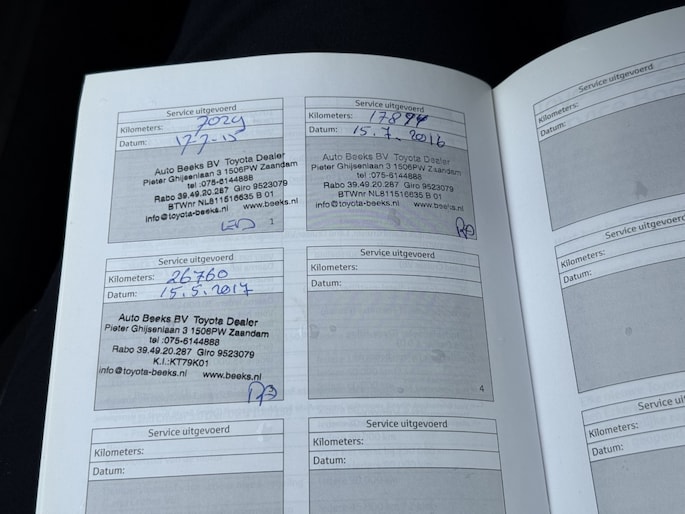 Service uitgevoerd
Kilometers: 7029
Datum: 17-7-15
Auto Beeks BV Toyota Dealer
Pieter Ghijsenlaan 3 1506PW Zaandam
tel :075-6144888
Rabo 39.49.20.287 Giro 9523079
BTWnr NL811516635 B 01
info@toyota-beeks.nl www.beeks.nl
1
Service uitgevoerd
Kilometers: 17894
Datum: 15.7.2016
Auto Beeks BV Toyota Dealer
Pieter Ghijsenlaan 3 1506PW Zaandam
tel :075-6144888
Rabo 39.49.20.287 Giro 9523079
BTWnr NL811516635 B 01
info@toyota-beeks.nl www.beeks.nl
Service uitgevoerd
Kilometers: 26760
Datum: 15.5.2017
Auto Beeks BV Toyota Dealer
Pieter Ghijsenlaan 3 1506PW Zaandam
tel :075-6144888
Rabo 39.49.20.287 Giro 9523079
K.I.:KT79K01
info@toyota-beeks.nl www.beeks.nl
Service uitgevoerd
Kilometers:
Datum:
4
Service uitgevoerd
Kilometers:
Datum:
Service uitgevoerd
Kilometers:
Datum:
Service uitgevoerd
Kilometers:
Datum:
Service uitgevoerd
Kilometers:
Datum:
Service
Kilometers:
Datum: